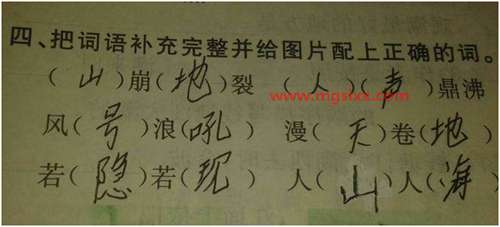 四、把词语补充完整并给图片配上正确的词。
（山）崩（地）裂 （人）（声）鼎沸
www.mgsixx.com
风（号）浪（吼） 漫（天）卷（地）
若（隐）若（现） 人（山）人（海）